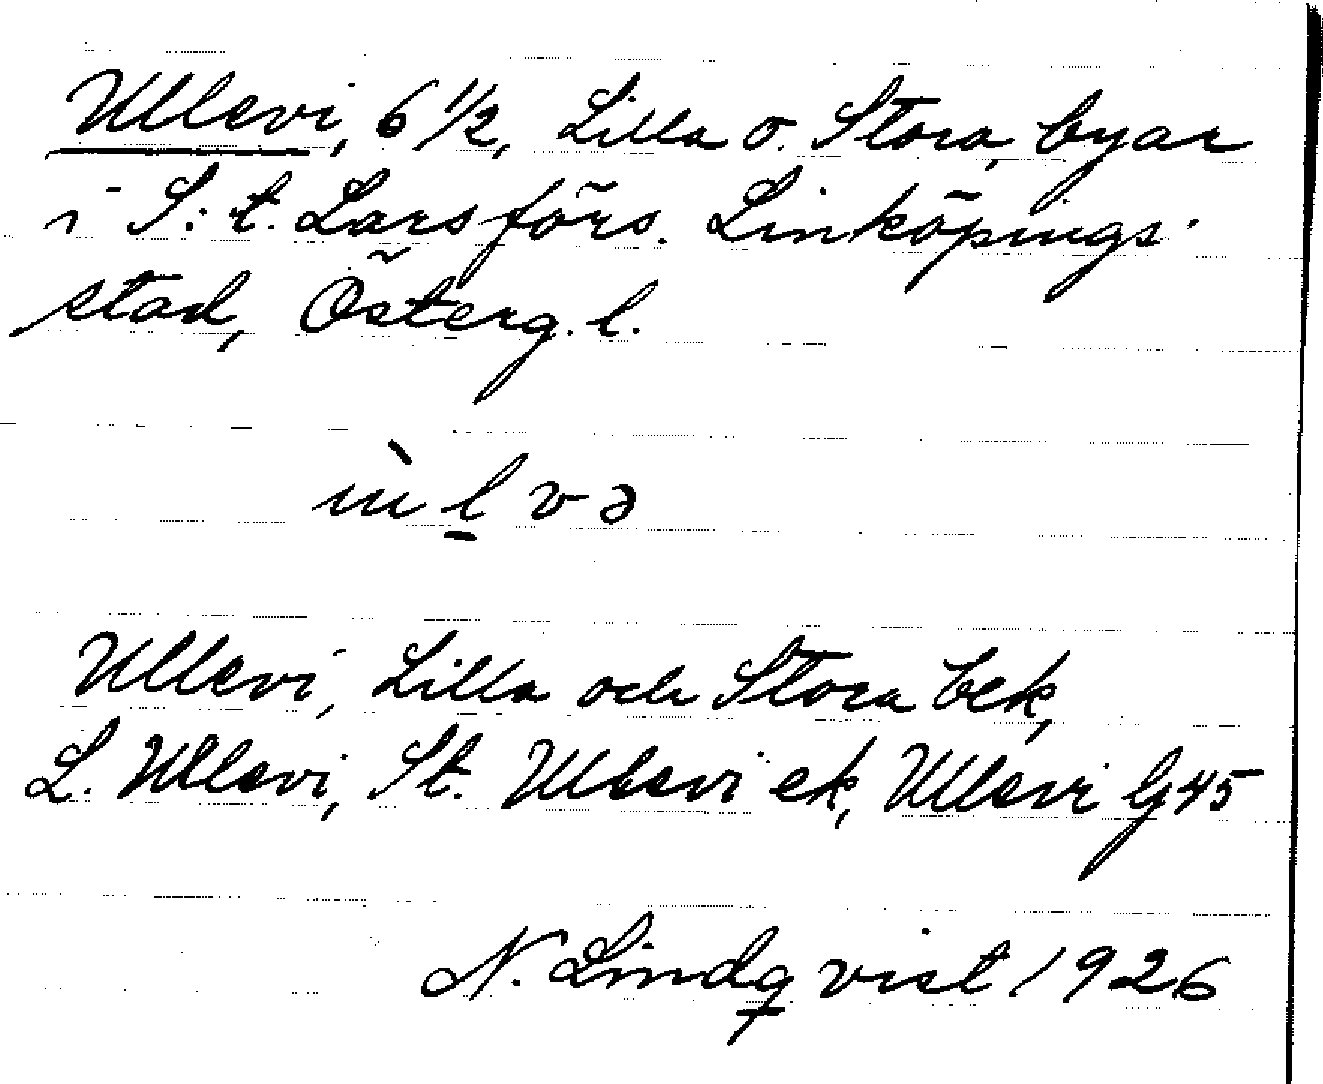 Ullevi, 6 1/2, Lilla o. Stora, byar
i S:t. Lars förs. Linköpings
stad, Österg. l.
ùl̲və
Ullevi, Lilla och Stora bek,
L. Ullevi, St. Ullevi ek, Ullevi G45
N. Lindqvist 1926